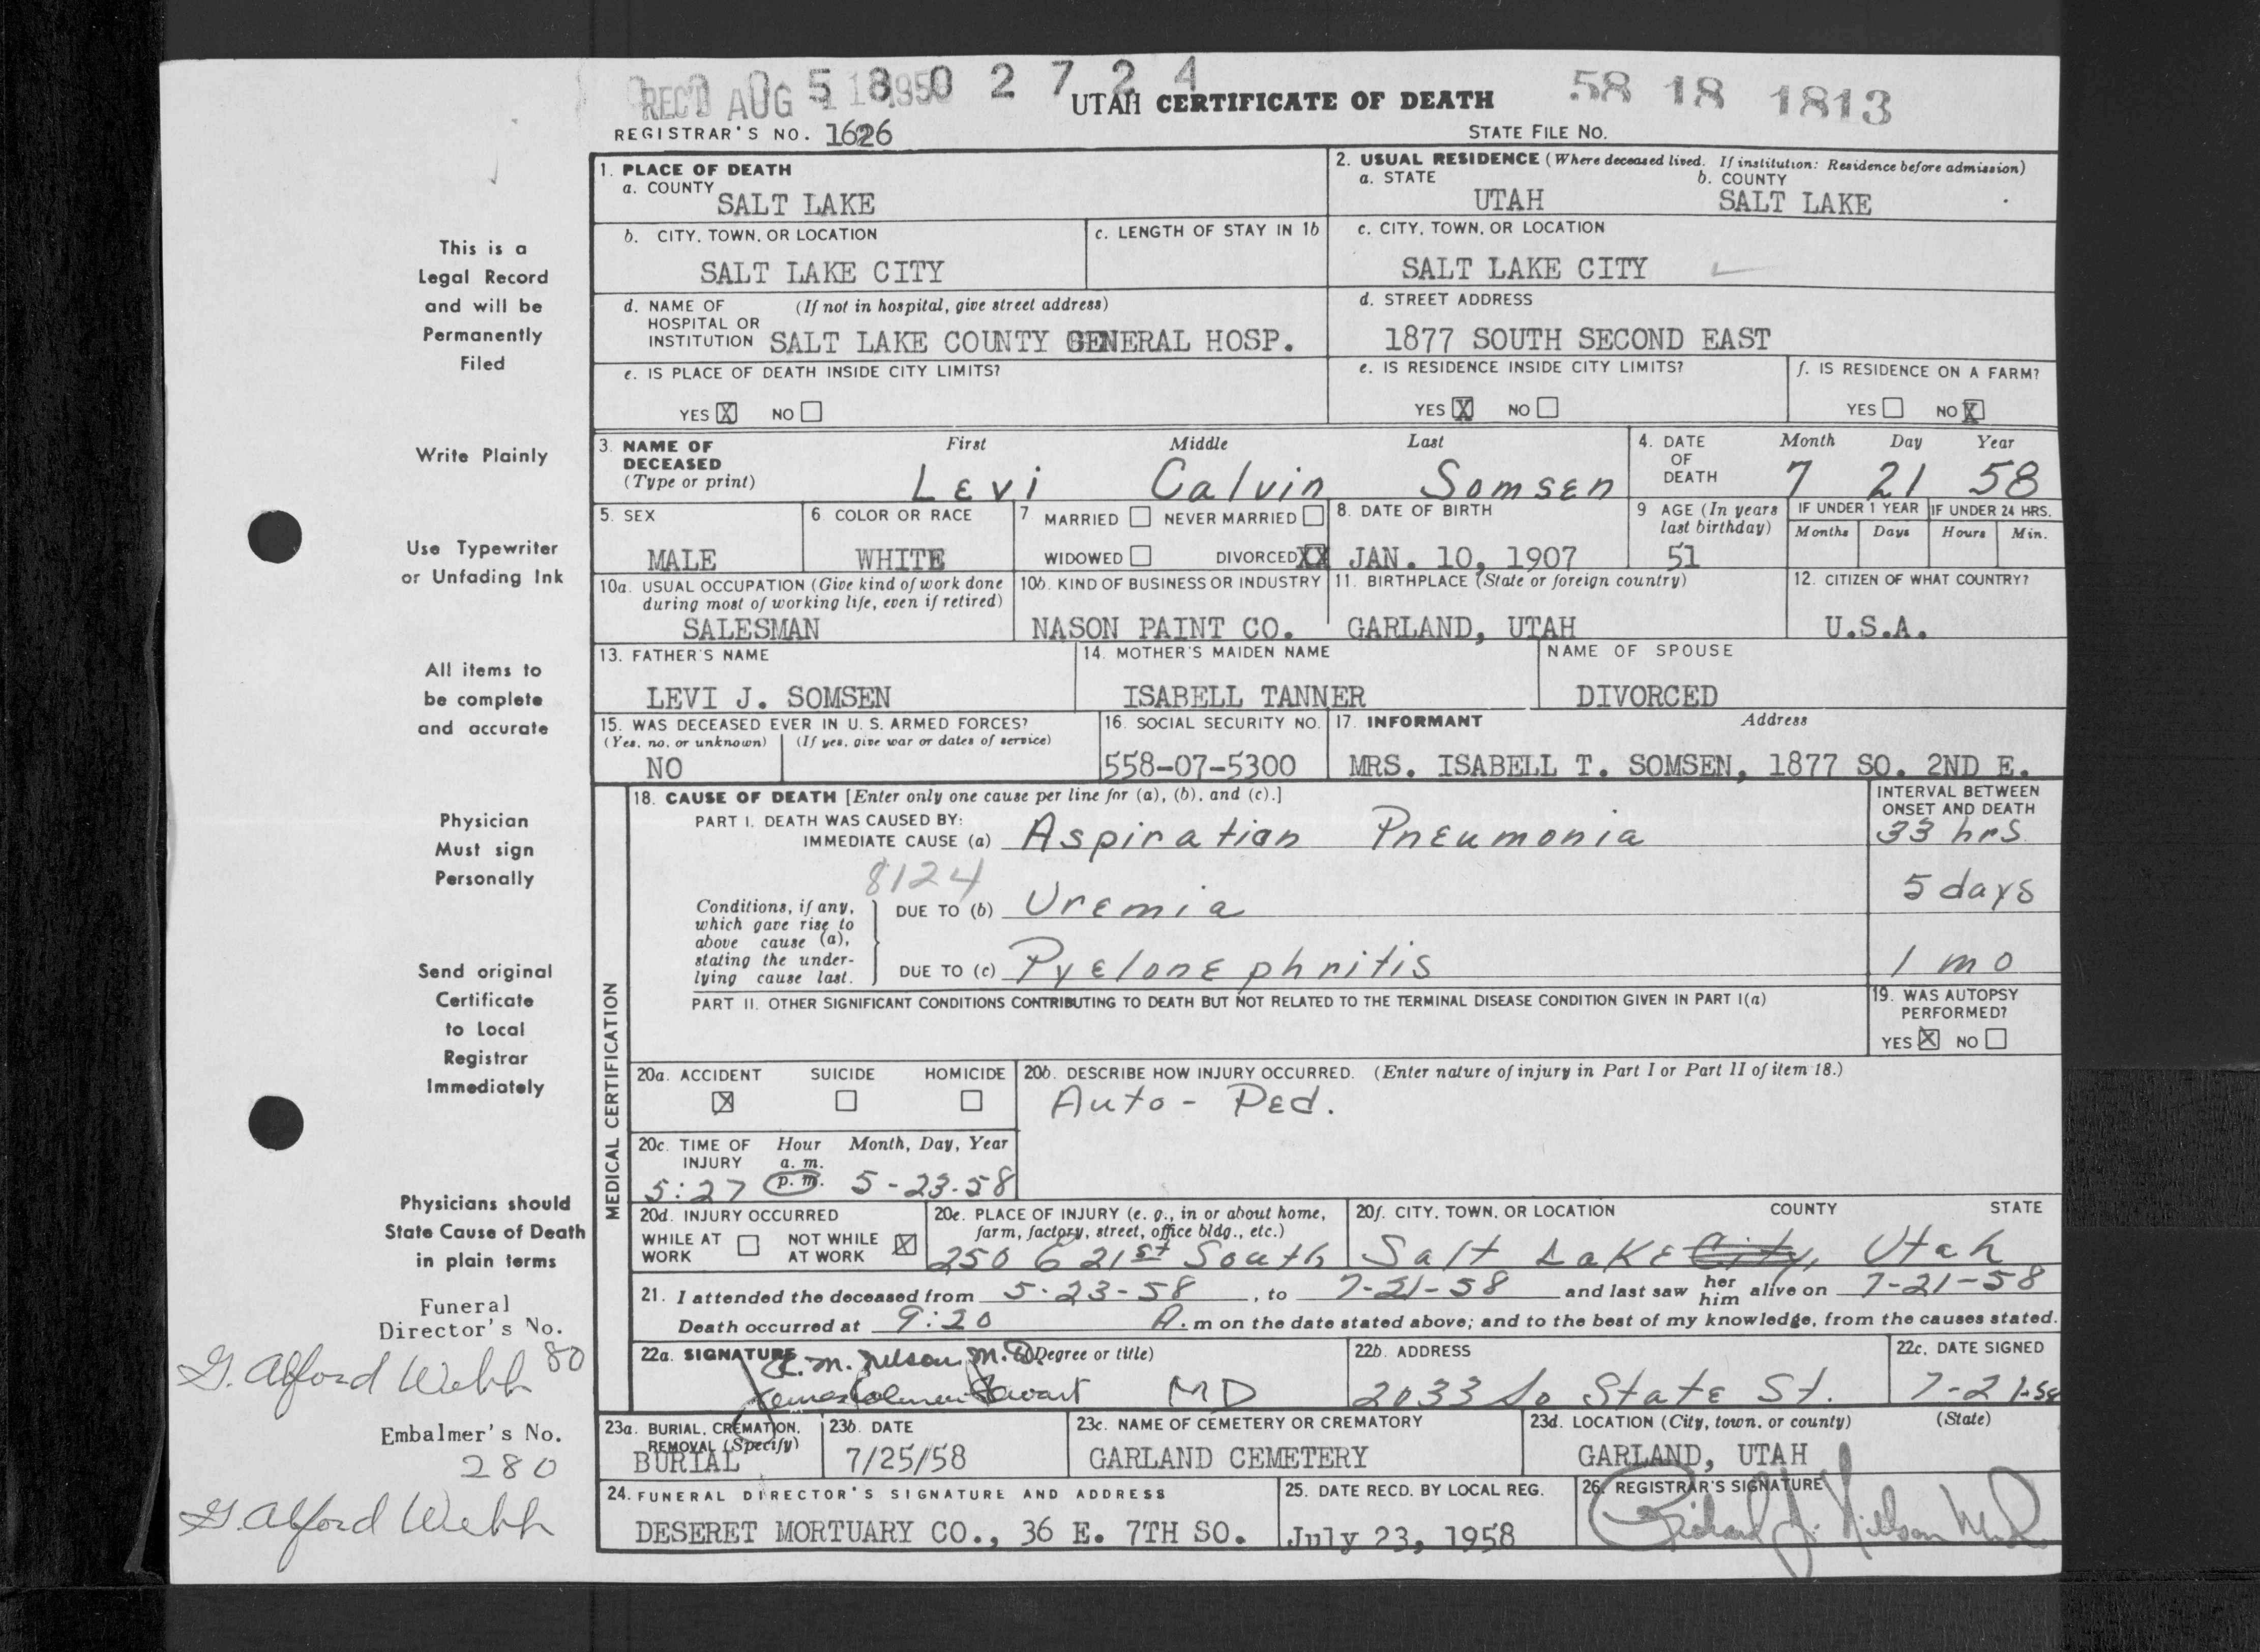 REC'D AUG 1 1958
5 8 0 2 7 2 4
UTAH CERTIFICATE OF DEATH
58 18 1813
REGISTRAR'S NO. 1626
STATE FILE NO.
1. PLACE OF DEATH
a. COUNTY
SALT LAKE
2. USUAL RESIDENCE (Where deceased lived. If institution: Residence before admission)
a. STATE b. COUNTY
UTAH SALT LAKE
b. CITY, TOWN, OR LOCATION
SALT LAKE CITY
c. LENGTH OF STAY IN 1b
c. CITY, TOWN, OR LOCATION
SALT LAKE CITY
d. NAME OF (If not in hospital, give street address)
HOSPITAL OR
INSTITUTION SALT LAKE COUNTY GENERAL HOSP.
d. STREET ADDRESS
1877 SOUTH SECOND EAST
e. IS PLACE OF DEATH INSIDE CITY LIMITS?
YES X NO
e. IS RESIDENCE INSIDE CITY LIMITS?
YES X NO
f. IS RESIDENCE ON A FARM?
YES NO X
3. NAME OF First Middle Last
DECEASED
(Type or print) Levi Calvin Somsen
4. DATE Month Day Year
OF
DEATH 7 21 58
5. SEX
MALE
6 COLOR OR RACE
WHITE
7 MARRIED NEVER MARRIED
WIDOWED DIVORCED XX
8. DATE OF BIRTH
JAN. 10, 1907
9 AGE (In years
last birthday)
51
IF UNDER 1 YEAR IF UNDER 24 HRS.
Months Days Hours Min.
10a. USUAL OCCUPATION (Give kind of work done
during most of working life, even if retired)
SALESMAN
10b. KIND OF BUSINESS OR INDUSTRY
NASON PAINT CO.
11. BIRTHPLACE (State or foreign country)
GARLAND, UTAH
12. CITIZEN OF WHAT COUNTRY?
U.S.A.
13. FATHER'S NAME
LEVI J. SOMSEN
14. MOTHER'S MAIDEN NAME
ISABELL TANNER
NAME OF SPOUSE
DIVORCED
15. WAS DECEASED EVER IN U. S. ARMED FORCES?
(Yes, no, or unknown) (If yes, give war or dates of service)
NO
16. SOCIAL SECURITY NO.
558-07-5300
17. INFORMANT Address
MRS. ISABELL T. SOMSEN, 1877 SO. 2ND E.
MEDICAL CERTIFICATION
18. CAUSE OF DEATH [Enter only one cause per line for (a), (b), and (c).]
INTERVAL BETWEEN
ONSET AND DEATH
PART I. DEATH WAS CAUSED BY:
IMMEDIATE CAUSE (a) Aspiration Pneumonia 33 hrs.
8124
Conditions, if any,
which gave rise to
above cause (a),
stating the under-
lying cause last.
DUE TO (b) Uremia 5 days
DUE TO (c) Pyelonephritis 1 mo
PART II. OTHER SIGNIFICANT CONDITIONS CONTRIBUTING TO DEATH BUT NOT RELATED TO THE TERMINAL DISEASE CONDITION GIVEN IN PART I(a)
19. WAS AUTOPSY
PERFORMED?
YES X NO
20a. ACCIDENT SUICIDE HOMICIDE
X
20b. DESCRIBE HOW INJURY OCCURRED. (Enter nature of injury in Part I or Part II of item 18.)
Auto - Ped.
20c. TIME OF Hour Month, Day, Year
INJURY a. m.
5:27 p. m. 5-23-58
20d. INJURY OCCURRED
WHILE AT NOT WHILE X
WORK AT WORK
20e. PLACE OF INJURY (e. g., in or about home,
farm, factory, street, office bldg., etc.)
250 21st South
20f. CITY, TOWN, OR LOCATION COUNTY STATE
Salt Lake City, Utah
21. I attended the deceased from 5-23-58, to 7-21-58 and last saw her him alive on 7-21-58
Death occurred at 9:20 A. m on the date stated above; and to the best of my knowledge, from the causes stated.
22a. SIGNATURE (Degree or title)
M. Nelson M.D.
MD
22b. ADDRESS
2033 So State St.
22c. DATE SIGNED
7-21-58
23a. BURIAL, CREMATION,
REMOVAL (Specify)
BURIAL
23b. DATE
7/25/58
23c. NAME OF CEMETERY OR CREMATORY
GARLAND CEMETERY
23d. LOCATION (City, town, or county) (State)
GARLAND, UTAH
24. FUNERAL DIRECTOR'S SIGNATURE AND ADDRESS
DESERET MORTUARY CO., 36 E. 7TH SO.
25. DATE RECD. BY LOCAL REG.
July 23, 1958
26. REGISTRAR'S SIGNATURE
This is a
Legal Record
and will be
Permanently
Filed
Write Plainly
Use Typewriter
or Unfading Ink
All items to
be complete
and accurate
Physician
Must sign
Personally
Send original
Certificate
to Local
Registrar
Immediately
Physicians should
State Cause of Death
in plain terms
Funeral
Director's No.
80
G. Alford Webb
Embalmer's No.
280
G. Alford Webb